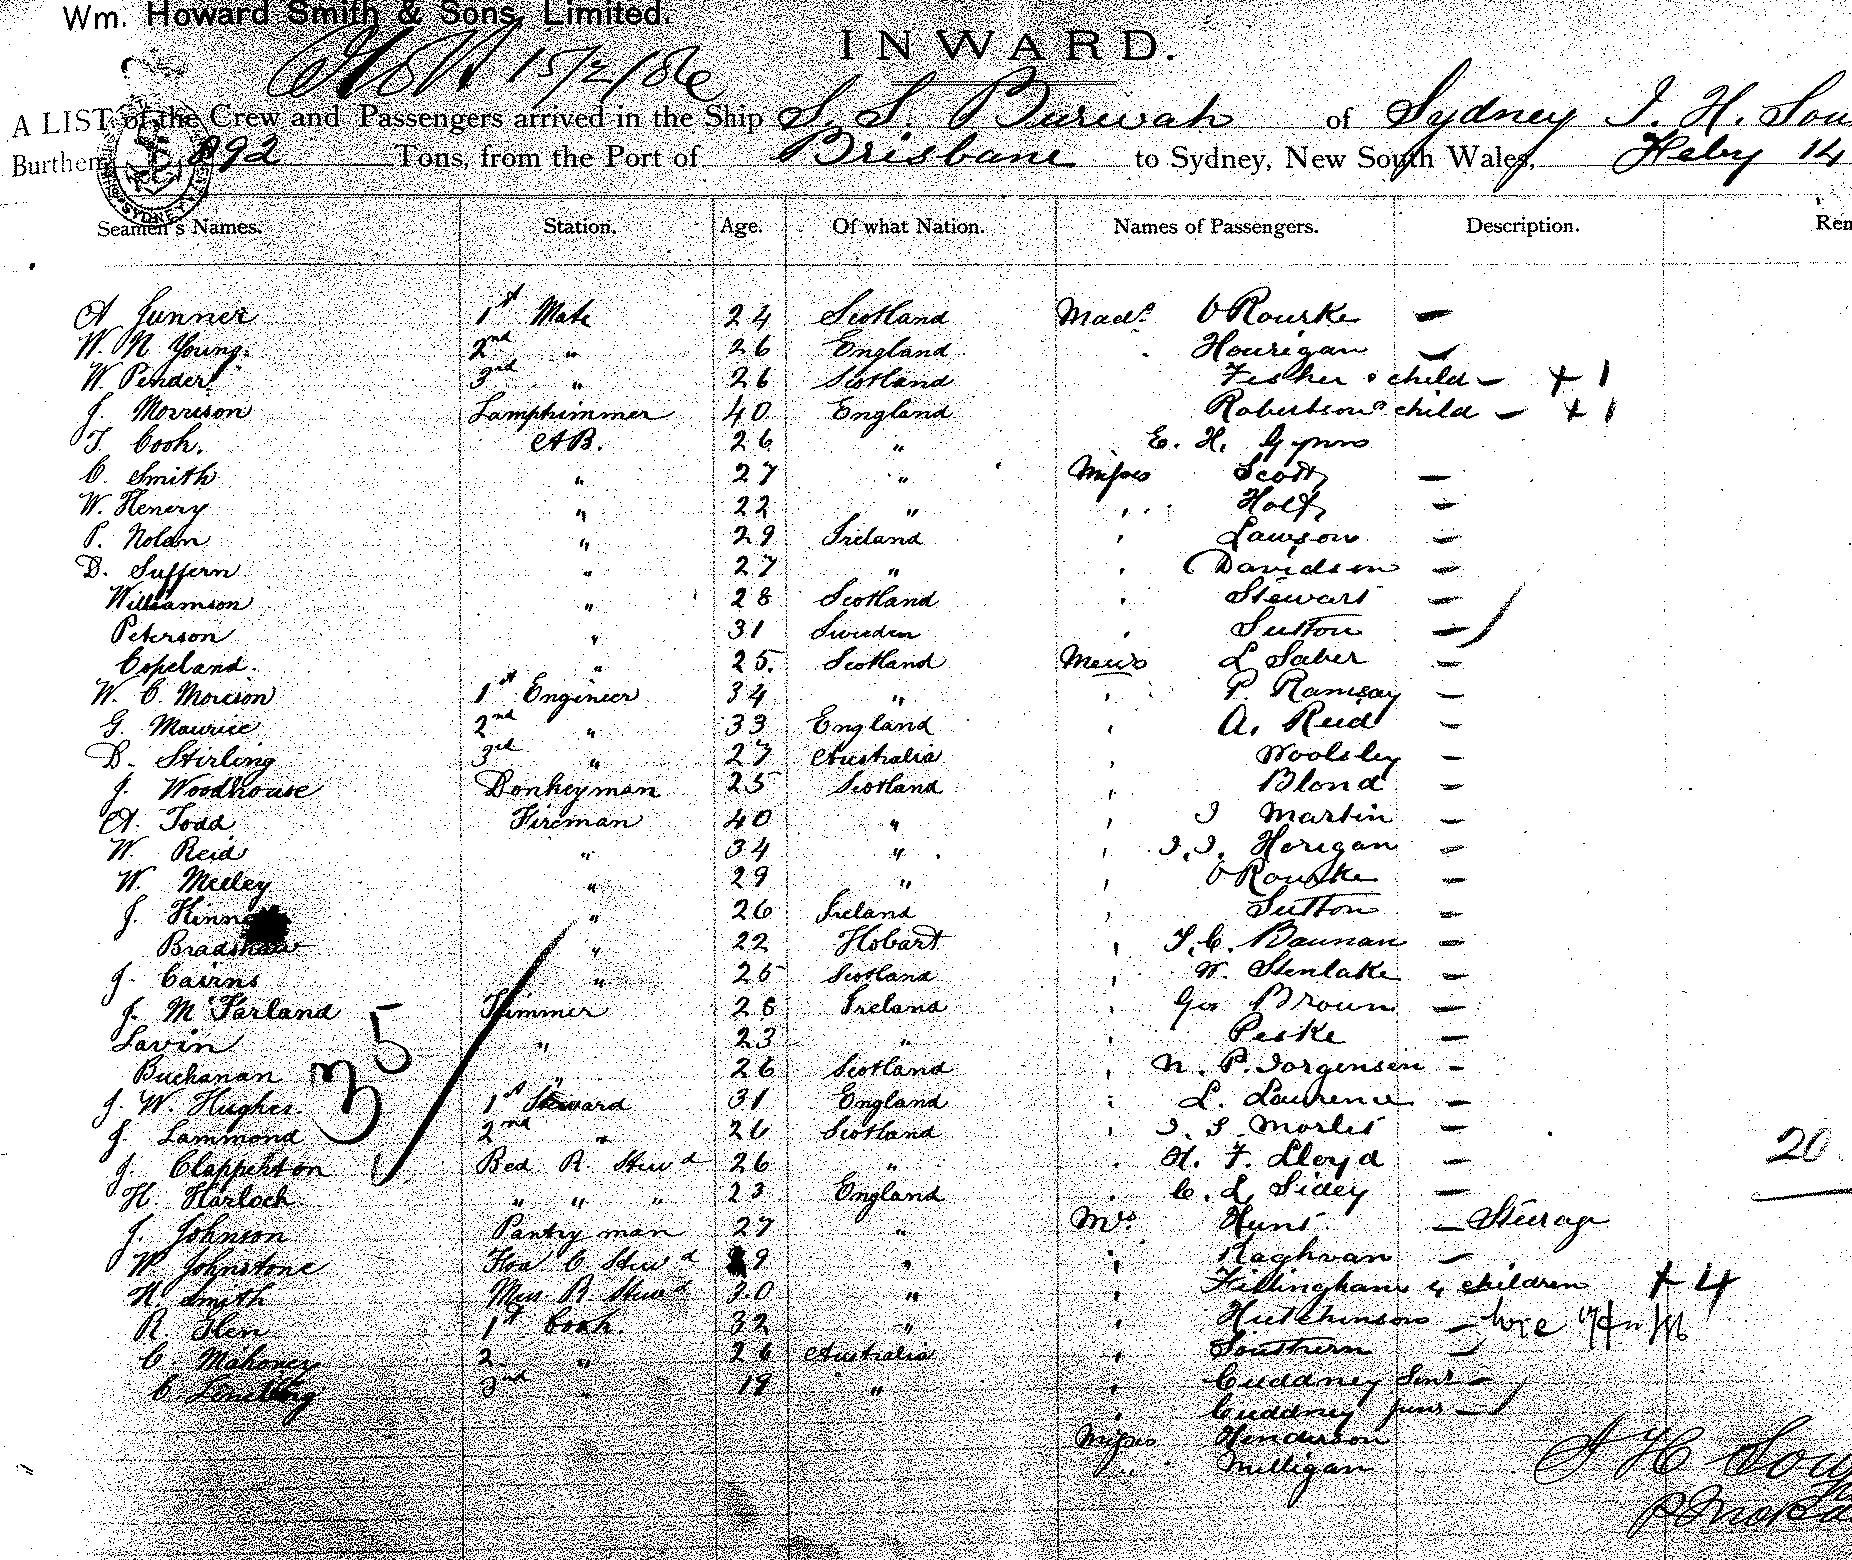 Wm. Howard Smith & Sons, Limited.
INWARD.
15/2/86
A LIST of the Crew and Passengers arrived in the Ship S. S. Burwah of Sydney J. H. Sou
Burthen 892 Tons, from the Port of Brisbane to Sydney, New South Wales, Feby 14
Seamen's Names. Station. Age. Of what Nation. Names of Passengers. Description. Rem
A Gunner 1st Mate 24 Scotland Mad. O'Rourke —
W. N Young. 2nd " 26 England Hourigan —
W. Pender 3rd " 26 Scotland Fisher & child — + 1
J. Morrison Lamptrimmer 40 England Robertson & child — + 1
T. Cook. AB. 26 " E. H. Gynn
C. Smith " 27 " Misses Scott —
W. Henery " 22 " " Holt —
P. Nolan " 29 Ireland " Lawson —
D. Suffern " 27 " " Davidson —
Williamson " 28 Scotland " Stewart —
Peterson " 31 Sweden " Sutton —
Copeland. " 25. Scotland Messrs L Saber —
W. C. Morison 1st Engineer 34 " " P. Ramsay —
G. Maurice 2nd " 33 England " A. Reid —
D. Stirling 3rd " 27 Australia Woolsley —
J. Woodhouse Donkeyman 25 Scotland " Blond —
A. Todd Fireman 40 " " J Martin —
W. Reid " 34 " " J. J. Horigan —
W. Meeley " 29 " " O'Rourke —
J. " 26 Ireland " Sutton —
Bradshaw " 22 Hobart " Baunan —
J. Cairns " 25 Scotland W. Stenlake —
J. McFarland Trimmer 26 Ireland " Geo Brown —
Lavin " 23 " " Peske —
Buchanan " 26 Scotland " N. P. Jorgensen —
35
J. W. Hughes. 1st Steward 31 England " L. Laurence —
J. Lammond 2nd " 26 Scotland " J. S. Morlet —
J. Clapperton Bed R. Stewd 26 " " H. F. Lloyd — 20
H. Horlock " " " 23 England " C. L. Sidey —
J. Johnson Pantry man 27 " Mrs. Hunt — Steerage
W Johnstone Stewd 9 " " Raghvan —
N Smith Mess R. Stewd 20 " " Fillingham & children + 4
R. Glen 1st Cook. 32 " " Hutchinson —
C. Mahoney 2 " 26 Australia " Southern —
C. 3rd " 19 " " Cuddney Senr —
" Cuddney Junr —
Misses Henderson
" Milligan
J H Sou